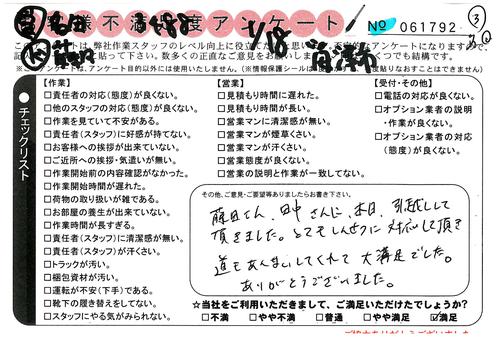 お客様不満足度アンケート
No 061792
③
1/18
このアンケートは、弊社作業スタッフのレベル向上に役立てたい
【作業】
□責任者の対応(態度)が良くない。
□他のスタッフの対応(態度)が良くない。
□作業を見ていて不安がある。
□責任者(スタッフ)に好感が持てない。
□お客様への挨拶が出来ていない。
□ご近所への挨拶・気遣いが無い。
□作業開始前の内容確認がなかった。
□作業開始時間が遅れた。
□荷物の取り扱いが雑である。
□お部屋の養生が出来ていない。
□作業時間が長すぎる。
□責任者(スタッフ)に清潔感が無い。
□責任者(スタッフ)が汗くさい。
□トラックが汚い。
□梱包資材が汚い。
□運転が不安(下手)である。
□靴下の履き替えをしてない。
□スタッフにやる気がみられない。
【営業】
□見積もり時間に遅れた。
□見積もり時間が長い。
□営業マンに清潔感が無い。
□営業マンが煙草くさい。
□営業マンが汗くさい。
□営業態度が良くない。
□営業の説明と作業が一致してない。
【受付・その他】
□電話の対応が良くない。
□オプション業者の説明
・作業が良くない。
□オプション業者の対応
(態度)が良くない。
●チェックリスト
その他、ご意見・ご要望等ありましたらお書き下さい。
藤田さん、田中さんに、本日、引越しして
頂きました。とてもしんせつに対応して頂き
道もあんないしてくれて 大満足でした。
ありがとうございました。
☆当社をご利用いただきまして、ご満足いただけたでしょうか?
□不満 □やや不満 □普通 □やや満足 ☑満足